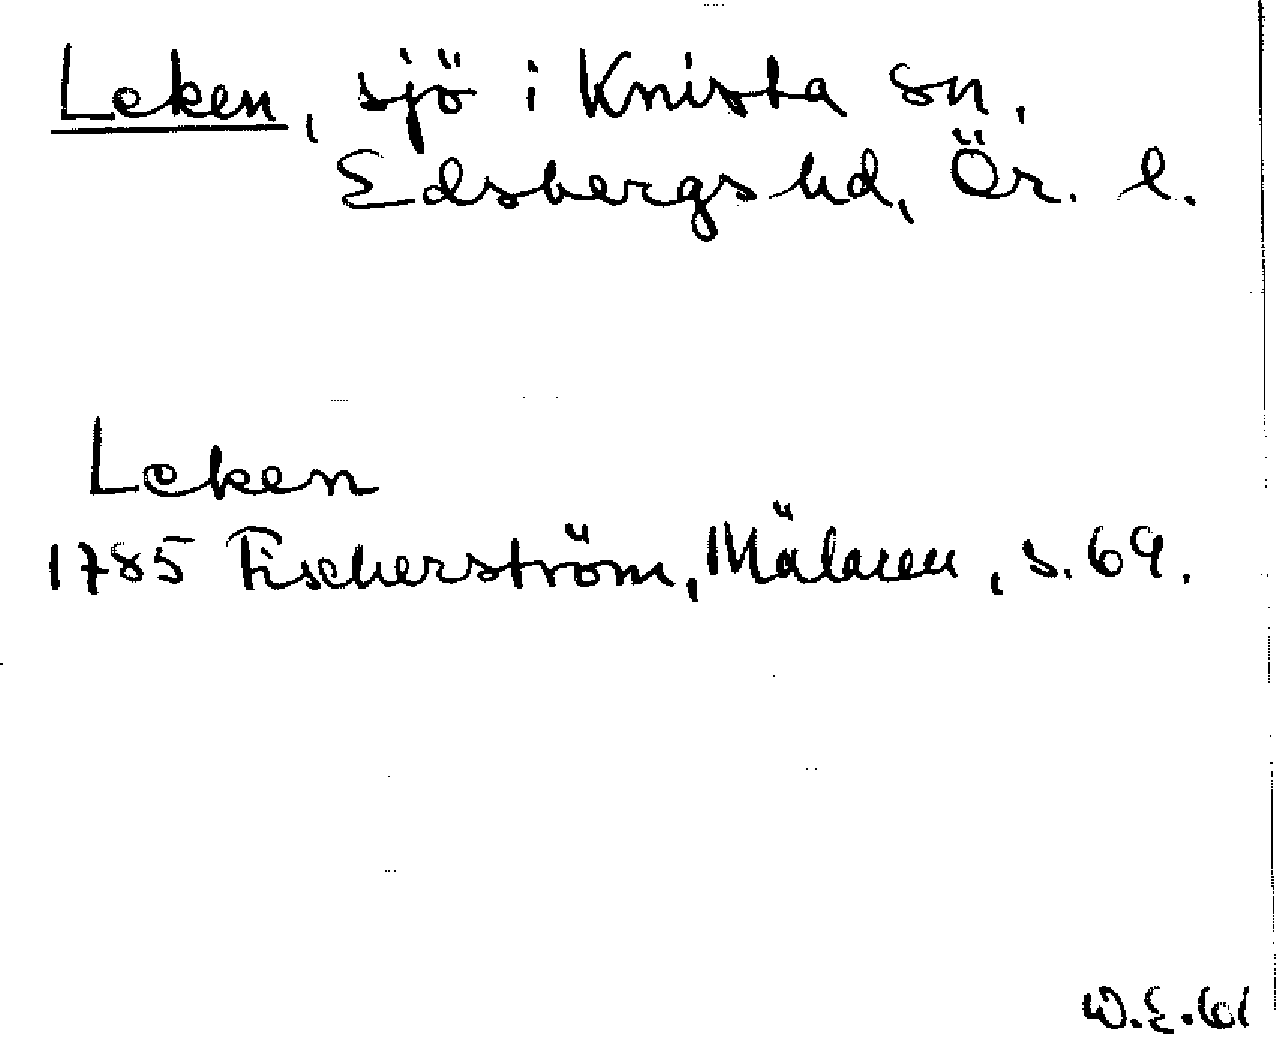 Leken, sjö i Knista sn,
Edsbergs hd, Ör. l.
Leken
1785 Fischerström, Mälaren, s. 69.
W.E. 61